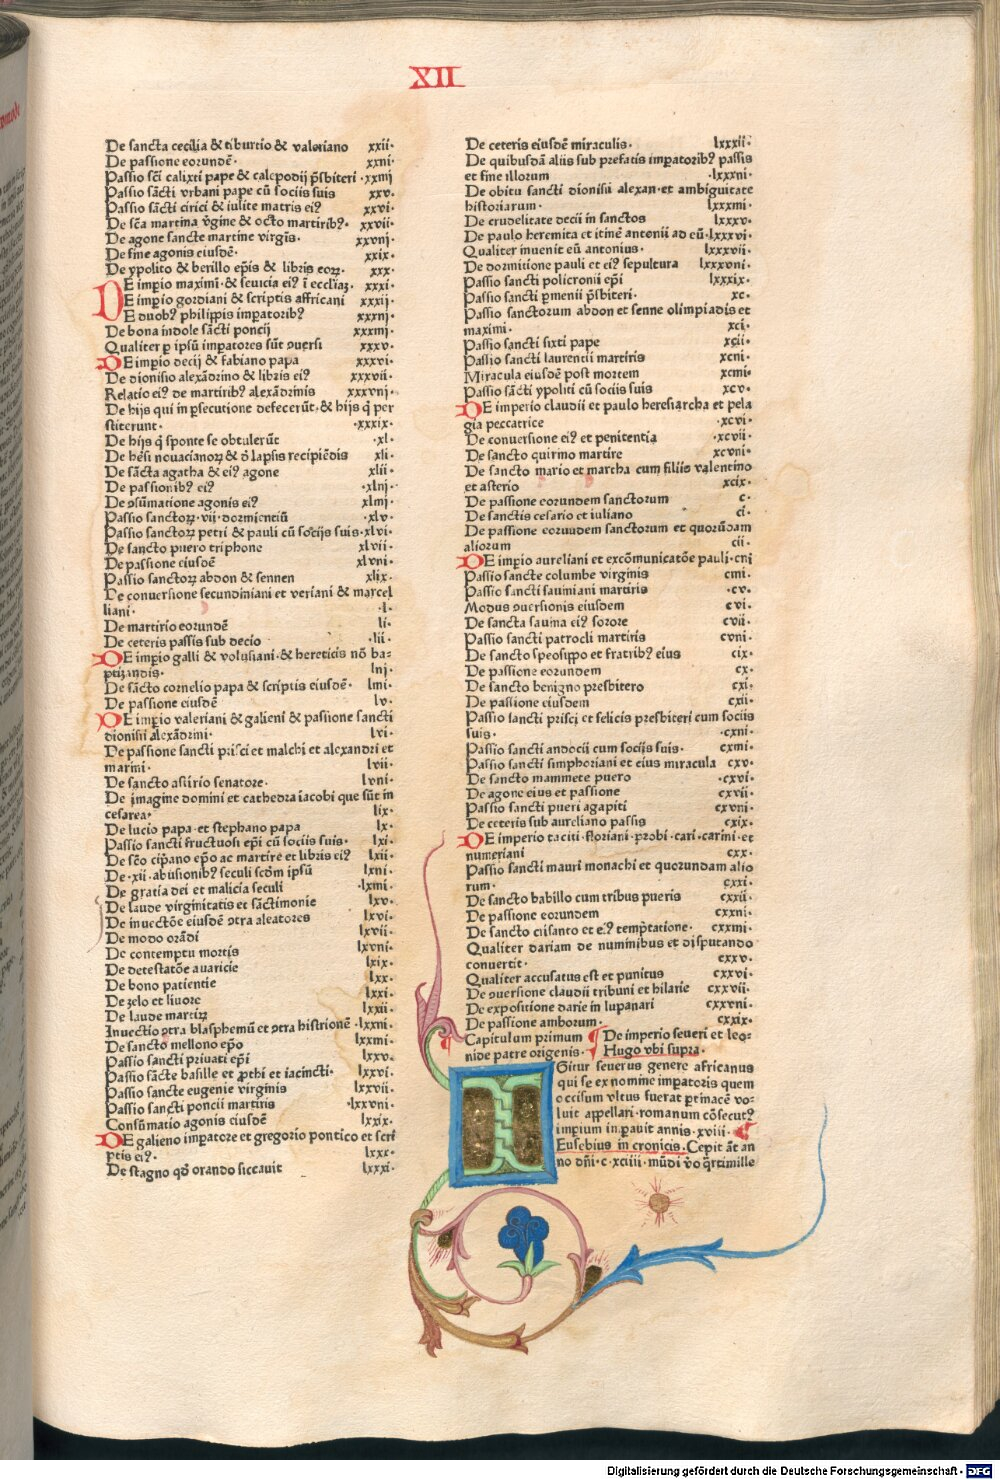 XII
De sancta cecilia & tiburtio & valeriano xxii·
De passione eorundē· xxni·
Passio scī calixti pape & calepodij p̄sbiteri ·xxnij
Passio sācti vrbani pape cū sociis suis xxv·
Passio sācti cirici & iulite matris eiꝰ xxvi·
De scā martina v̄gine & octo martiribꝰ· xxvii·
De agone sancte martine virgīs· xxvnj·
De fine agonis eiusdē· xxix·
De ypolito & berillo ep̄is & libris eoꝝ· xxx·
DE imp̄io maximī· & seuicia eiꝰ ī eccl̄iaꝫ· xxxi·
E imp̄io gordiani & scriptis affricani xxxij·
E duobꝰ philippis imp̄atoribꝰ xxxnj·
De bona indole sācti poncij xxxmj·
Qualiter ꝑ ip̄sū imp̄atores sūt ꝯuersi xxxv·
DE imp̄io decij & fabiano papa xxxvi·
De dionisio alexādrino & libris eiꝰ xxxvii·
Relatio eiꝰ de martiribꝰ alexādrinis xxxvnj·
De hijs qui in ꝑsecutione defecerūt·& hijs q̄ per
stiterunt· ·xxxix·
De hijs q̄ sponte se obtulerūt ·xl·
De hēsi nouacianoꝝ & ꝺ̄ lapsis recipiēdis xli·
De sācta agatha & eiꝰ agone xlii·
De passionibꝰ eiꝰ ·xlnj·
De ꝯsūmatione agonis eiusdē xlmj·
Passio sanctoꝝ·vii·dormientiū ·xlv·
Passio sanctoꝝ petri & pauli cū socijs suis·xlvi·
De sancto puero triphone xlvii·
De passione eiusdē xlvni·
Passio sanctoꝝ abdon & sennen xlix·
De conuersione secundiniani et veriani & marcel
liani· ·l·
De martirio eorundē li·
De ceteris passis sub decio ·lii·
DE imp̄io galli & volusiani·& hereticis nō ba-
ptizandis· lnj·
De sācto cornelio papa & scriptis eiusdē· lmi·
De passione eiusdē lv·
DE imp̄io valeriani & galieni & passione sancti
dionisii alexādrini· lvi·
De passione sancti prisci et malchi et alexandri et
marini· lvii·
De sancto astirio senatore· lvni·
De ymagine domini et cathedra iacobi que sūt in
cesarea· lix·
De lucio papa·et stephano papa lx·
Passio sancti fructuosi ep̄i cū sociis suis· lxi·
De scō cip̄ano ep̄o ac martire et libris eiꝰ lxii·
De·xii·abusionibꝰ seculi scdm ip̄sū lxni·
De gratia dei et malicia seculi ·lxmi·
De laude virginitatis et sāctimonie lxv·
De inuectōe eiusdē ꝯtra aleatores lxvi·
De modo orādi lxvii·
De contemptu mortis lxvni·
De detestatōe auaricie lxix·
De bono patientie lxx·
De zelo et liuore lxxi·
De laude martirꝝ lxxii·
Inuectio ꝯtra blasphemū et ꝯtra histrionē·lxxni·
De sancto mellono ep̄o lxxmi·
Passio sancti priuati ep̄i lxxv·
Passio sācte basille et ꝓthi et iacincti· lxxvi·
Passio sancte eugenie virginis lxxvii·
Passio sancti poncii martiris ·lxxvni·
Consūmatio agonis eiusdē lxxix·
DE galieno imp̄atore et gregorio pontico et scri
ptis eiꝰ· lxxx·
De stagno qd̄ orando siccauit lxxxi·
De ceteris eiusdē miraculis· lxxxii·
De quibusdā aliis sub prefatis imp̄atoribꝰ passis
et fine illorum ·lxxxni·
De obitu sancti dionisii alexan·et ambiguitate
historiarum· lxxxmi·
De crudelitate decii in sanctos lxxxv·
De paulo heremita et itinē antonii ad eū·lxxxvi·
Qualiter inuenit eū antonius· lxxxvii·
De dormitione pauli et eiꝰ sepultura lxxxvni·
Passio sancti policronii ep̄i lxxxix·
Passio sancti ꝑmenii p̄sbiteri· xc·
Passio sanctorum abdon et senne olimpiadis et
maximi· xci·
Passio sancti sixti pape xcii·
Passio sancti laurentii martiris xcni·
Miracula eiusdē post mortem xcmi·
Passio sācti ypoliti cū sociis suis xcv·
DE imperio claudii et paulo heresiarcha et pela
gia peccatrice ·xcvi·
De conuersione eiꝰ et penitentia ·xcvii·
De sancto quirino martire xcvni·
De sancto mario et martha cum filiis valentino
et asterio xcix·
De passione eorundem sanctorum c·
De sanctis cesario et iuliano ci·
De passione eorundem sanctorum et quorūdam
aliorum cii·
DE imp̄io aureliani et excōmunicatōe pauli·cni
Passio sancte columbe virginis cmi·
Passio sancti sauiniani martiris ·cv·
Modus ꝯuersionis eiusdem cvi·
De sancta sauina eiꝰ sorore cvii·
Passio sancti patrocli martiris cvni·
De sancto speosippo et fratribꝰ eius cix·
De passione eorundem cx·
De sancto benigno presbitero cxi·
De passione eiusdem cxii·
Passio sancti prisci et felicis presbiteri cum sociis
suis· ·cxni·
Passio sancti andocii cum socijs suis· cxmi·
Passio sancti simphoriani et eius miracula cxv·
De sancto mammete puero ·cxvi·
De agone eius et passione cxvii·
Passio sancti pueri agapiti cxvni·
De ceteris sub aureliano passis cxix·
DE imperio taciti·floriani·probi·cari·carini·et
numeriani cxx·
Passio sancti mauri monachi et quorundam alio
rum· cxxi·
De sancto babillo cum tribus pueris cxxii·
De passione eorundem cxxni·
De sancto crisanto et eiꝰ temp̄tatione· cxxmi·
Qualiter dariam de numinibus et disputando
conuertit· cxxv·
Qualiter accusatus est et punitus cxxvi·
De ꝯuersione claudii tribuni et hilarie cxxvii·
De expositione darie in lupanari cxxvni·
De passione amborum· cxxix·
Capitulum primum ¶ De imperio seueri et leo-
nide patre origenis· ¶ Hugo vbi supra·
IGitur seuerus genere africanus
qui se ex nomine imp̄atoris quem
occisum vltus fuerat ꝑtinacē vo-
luit appellari·romanum cōsecutꝰ
imp̄ium imꝑauit annis·xviii· ¶
Eusebius in cronicis· Cepit āt an
no dn̄i·c·xciiii·mūdi v̄o q̄rtimille
Digitalisierung gefördert durch die Deutsche Forschungsgemeinschaft - DFG